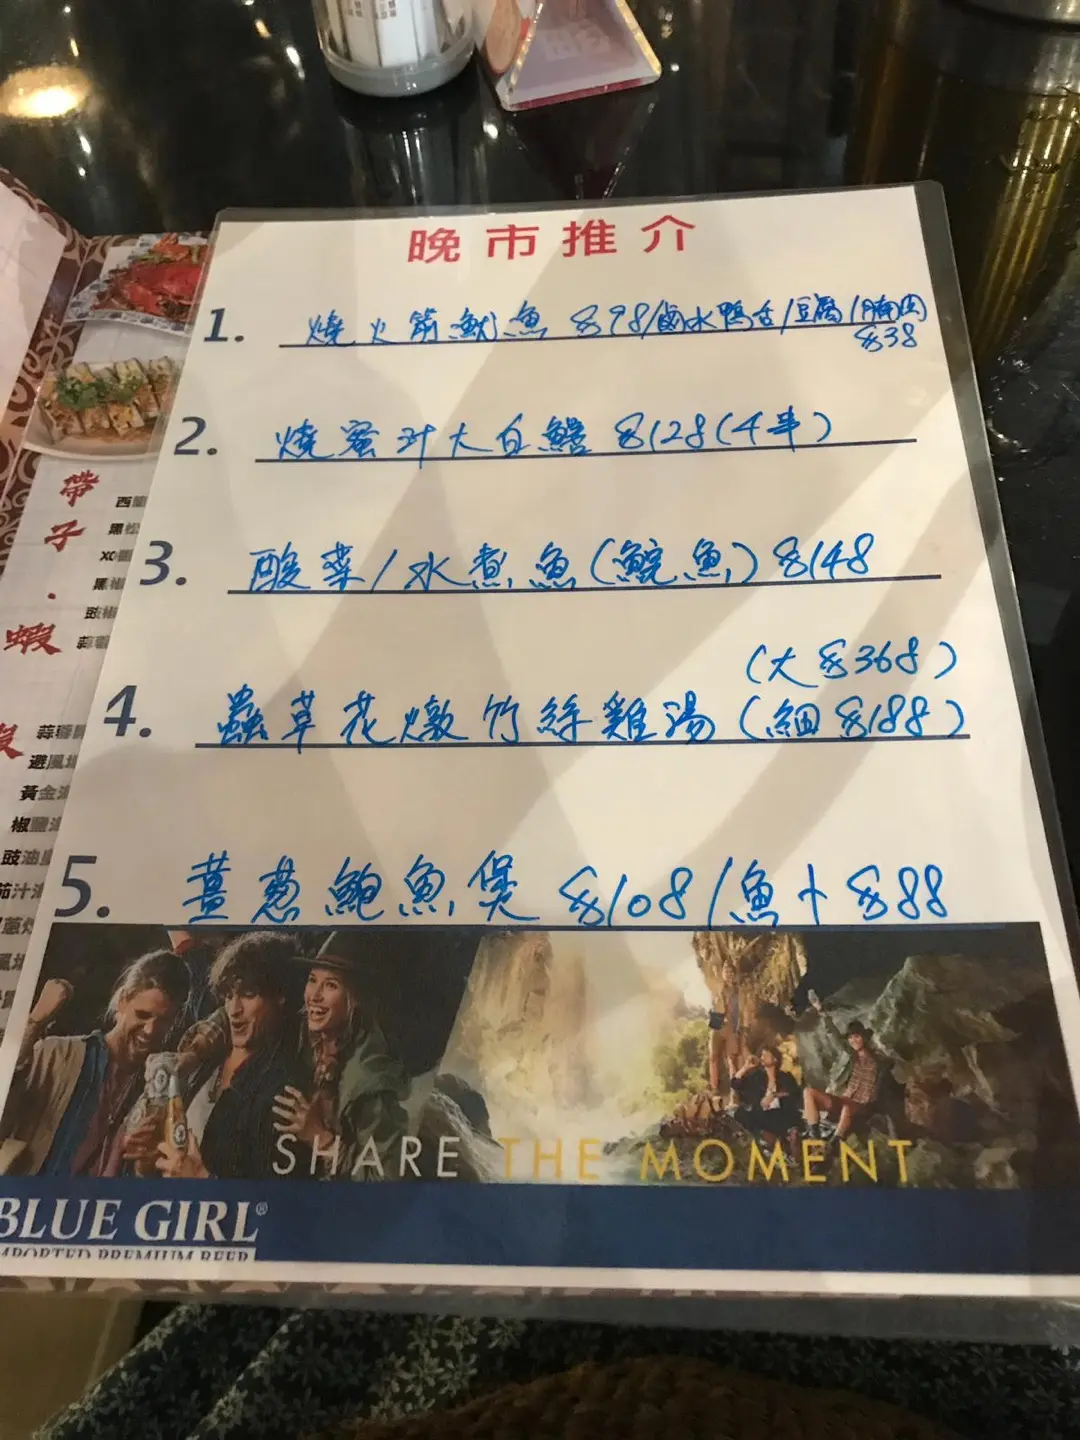 晚市推介
1. 燒火箭魷魚 $98/鹵水鴨舌/豆腐/腩肉
$38
2. 燒蜜汁大白鱔 $128(4串)
3. 酸菜/水煮魚(鯇魚) $148
(大 $368)
4. 蟲草花燉竹絲雞湯(細 $188)
5. 薑葱鮑魚煲 $108/魚卜 $88
SHARE THE MOMENT
BLUE GIRL®
IMPORTED PREMIUM BEER
帶子·蝦
西蘭
黑松
XO醬
黑椒
豉椒
蒜蓉
避風塘
黃金
椒鹽
豉油
茄汁